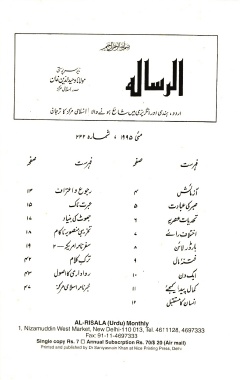 بسم اللہ الرحمن الرحیم
زیر سرپرستی
مولانا وحیدالدین خاں
صدر اسلامی مرکز
الرسالہ
اردو، ہندی اور انگریزی میں شائع ہونے والا اسلامی مرکز کا ترجمان
مئی ۱۹۹۵، شمارہ ۲۲۲
فہرست صفحہ
آزمائش ۴
صبر کی عبادت ۵
تحدیات عصریہ ۶
اختلاف رائے ۷
بارڈر لائن ۸
فتنۂ مال ۹
ایک دن ۱۰
کمال پیدا کیجئے ۱۱
انسان کا مستقبل ۱۲
فہرست صفحہ
رجوع و اعتراف ۱۳
حیرت ناک ۱۵
جھوٹ کی بنیاد ۱۷
تخریبی منصوبہ ناکام ۱۸
سفرنامہ امریکہ - ۲ ۱۹
ترک کلام ۴۲
رواداری کا اصول ۴۳
خبرنامہ اسلامی مرکز ۴۷
AL-RISALA (Urdu) Monthly
1, Nizamuddin West Market, New Delhi-110 013, Tel. 4611128, 4697333
Fax: 91-11-4697333
Single copy Rs. 7 □ Annual Subscription Rs. 70/$ 20 (Air mail)
Printed and published by Dr Saniyasnain Khan at Nice Printing Press, Delhi